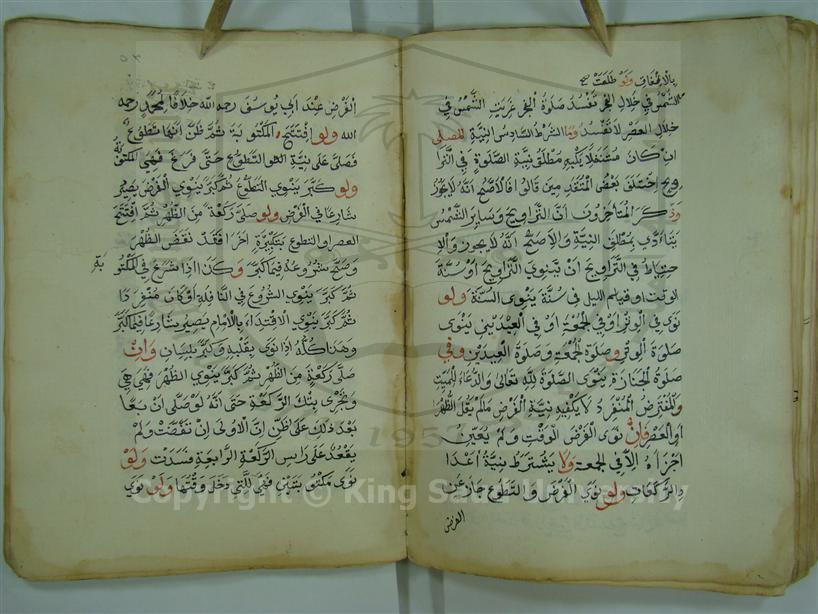 بالاتفاق ولو طلعت
الشمس في خلال الفجر تفسد صلوة الفجر غربت الشمس في
خلال العصر لا تفسد وما الشرط السادس النية المصلى
ان كان متنفلا يكفيه مطلق نية الصلوة في الترا
ويح اختلف بعض المتقدمين قالوا الاصح انه لا يجوز
وذكر المتأخرون ان التراويح وساير السنن
يتادى بمطلق النية والاصح انه لا يجوز والا
حتياط في التراويح ان ينوي التراويح او سنة
الوقت او قيام الليل في سنة ينوى السنة ولو
نوى في الوتر او في الجمعة او في العيدين ينوى
صلوة الوتر وصلوة الجمعة وصلوة العيدين وفي
صلوة الجنازة ينوى الصلوة لله تعالى والدعاء للميت
والمفترض المنفرد لا يكفيه نية الفرض مالم يقل الظهر
او العصر فان نوى الفرض الوقت ولم يعين
اجزاه الا في الجمعة ولا يشترط نية اعدا
د الركعات ولو نوى الفرض والتطوع جاز عن
الفرض
الفرض عند ابي يوسف رحمه الله خلافا لمحمد رحمه
الله ولو افتتح المكتوبة ثم ظن انها تطوع
فصلى على نية التطوع حتى فرغ فهي المكتوبة
ولو كبر ينوي التطوع ثم كبر ينوي الفرض يصير
شارعا في الفرض ولو صلى ركعة من الظهر ثم افتتح
العصر او التطوع بتكبيرة اخرا فقد نقض الظهر
وصح شروعه فيما كبر وكذا اذا شرع في المكتو
بة
ثم كبر ينوي الشروع في النافلة او كان منفردا
ثم كبر ينوي الاقتداء بالامام يصير شارعا فيما كبر
وهذا كله اذا نوى بقلبه وكبر بلسان وان
صلى ركعة من الظهر ثم كبر ينوي الظهر فهي هي
وتجزى بتلك الركعة حتى انه لو صلى اربعا
بعد ذلك على ظن ان الاولى انتقضت ولم
يقعد على راس الركعة الرابعة فسدت ولو
نوى مكتوبتين فهي للتي دخل وقتها ولو نوى
1957
Copyright © King Saud University